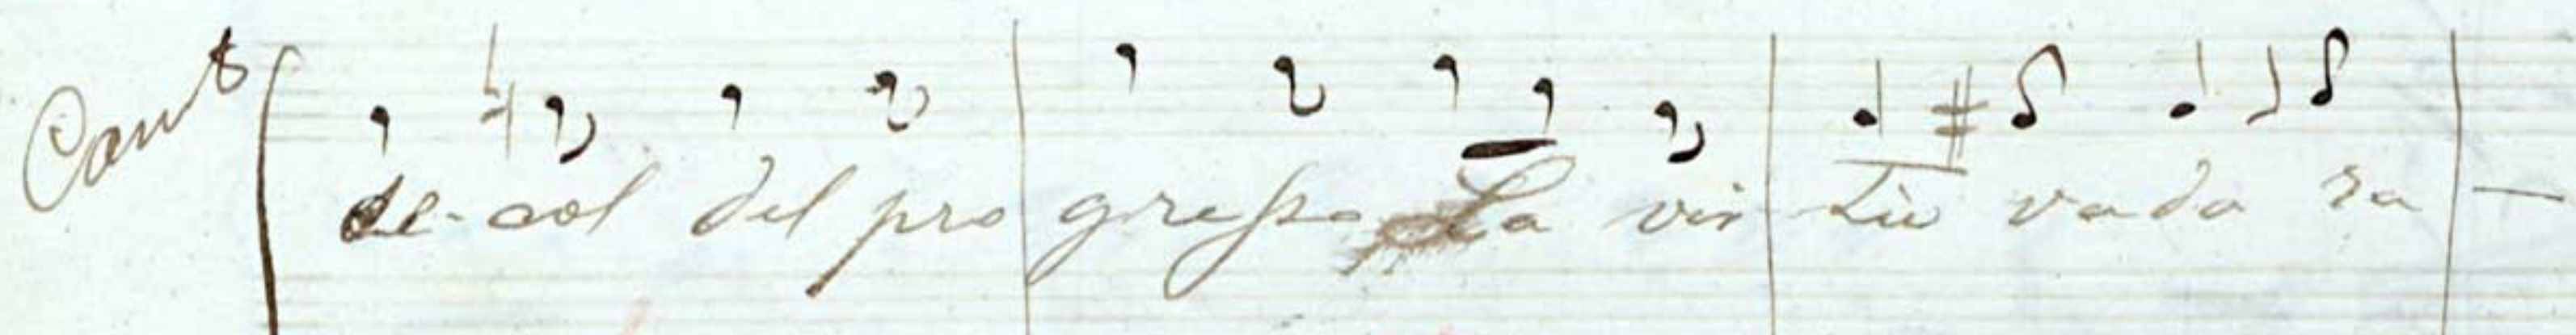 Canto
se-col del pro gresso La vir tù vada ra